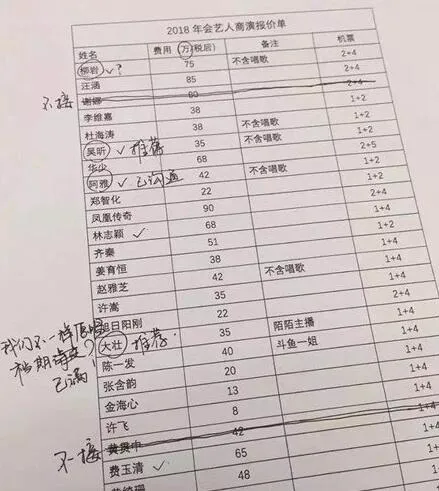 2018 年会艺人商演报价单
姓名 费用 万(税后) 备注 机票
柳岩 ✓? 75 不含唱歌 2+4
汪涵 85 2+4
不接 谢娜 80 2+4
李维嘉 38 1+2
杜海涛 38 不含唱歌 1+2
吴昕 ✓ 推荐 35 不含唱歌 1+2
华少 68 2+5
阿雅 ✓ 已沟通 42 不含唱歌 1+2
郑智化 22 2+4
凤凰传奇 90 1+4
林志颖 ✓ 68 1+2
齐秦 51 1+4
姜育恒 38 1+2
赵雅芝 42 不含唱歌 1+4
许嵩 35 2+4
旭日阳刚 22 1+4
我们不一样
大壮 推荐 35 陌陌主播 1+4
档期
已满
陈一发 40 斗鱼一姐 1+4
张含韵 20 1+4
金海心 13 1+4
许飞 8 1+4
不接 黄贯中 42 1+4
费玉清 ✓ 65 1+4
黄绮珊 48 1+4